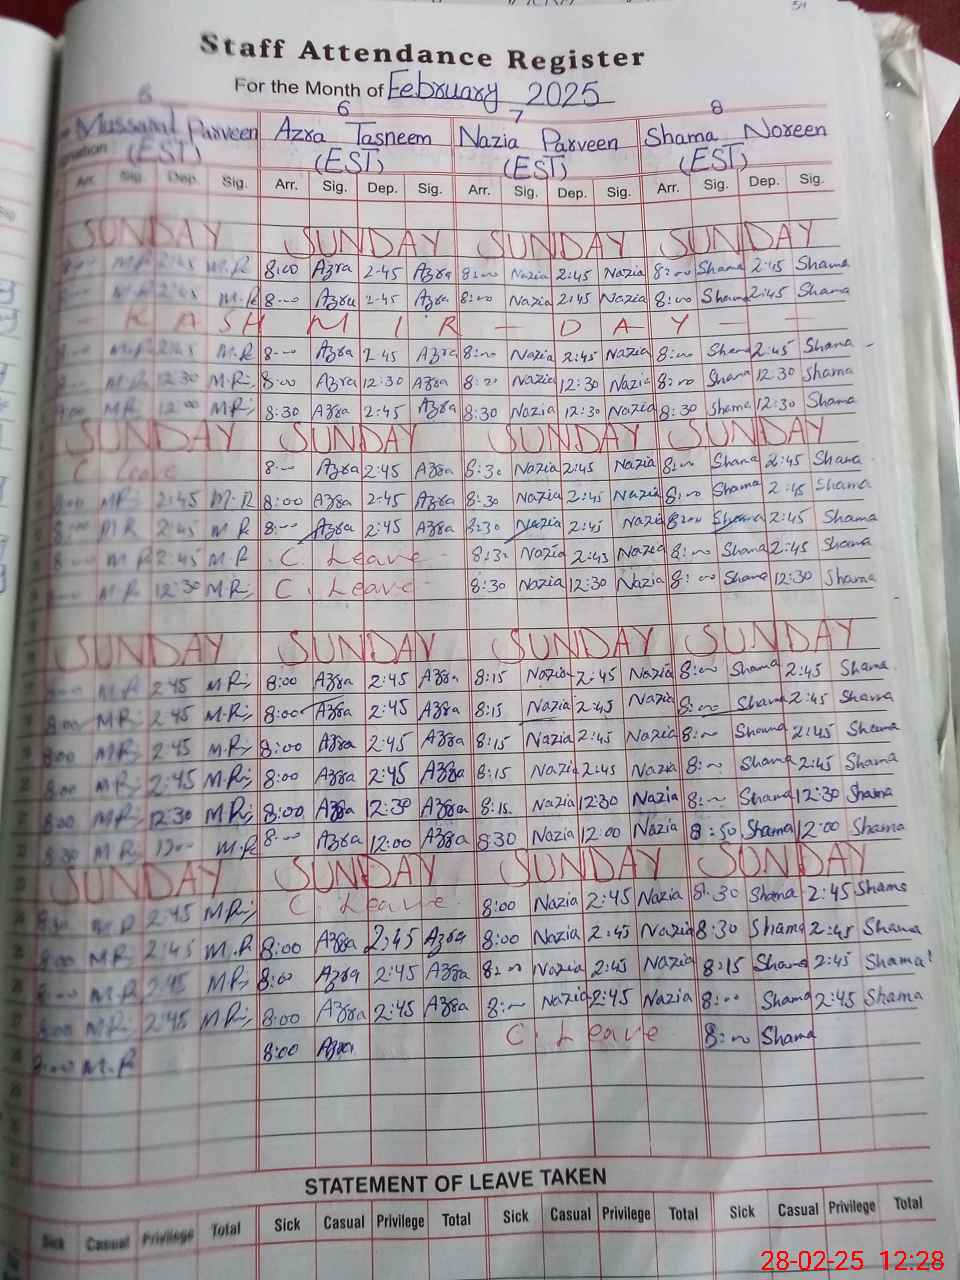 Staff Attendance Register
For the Month of February 2025
6 7 8
Mussarat Parveen Azra Tasneem Nazia Parveen Shama Noreen
(EST) (EST) (EST) (EST)
Arr. Sig. Dep. Sig. Arr. Sig. Dep. Sig. Arr. Sig. Dep. Sig. Arr. Sig. Dep. Sig.
SUNDAY SUNDAY SUNDAY SUNDAY
M.R 2:45 M.R 8:00 Azra 2-45 Azra 8:00 Nazia 2:45 Nazia 8:00 Shama 2:45 Shama
M.R 8:00 Azra 2-45 Azra 8:00 Nazia 2:45 Nazia 8:00 Shama 2:45 Shama
- KASHMIR - DAY - -
M.R 2:45 M.R 8:00 Azra 2 45 Azra 8:00 Nazia 2:45 Nazia 8:00 Shama 2:45 Shama
M.R 12:30 M.R; 8:00 Azra 12:30 Azra 8:00 Nazia 12:30 Nazia 8:00 Shama 12:30 Shama
MR 12:00 M.R; 8:30 Azra 2:45 Azra 8:30 Nazia 12:30 Nazia 8:30 Shama 12:30 Shama
SUNDAY SUNDAY SUNDAY SUNDAY
C Leave 8:00 Azra 2:45 Azra 8:30 Nazia 2:45 Nazia 8:00 Shama 2:45 Shama
8:00 MR; 2:45 M.R 8:00 Azra 2:45 Azra 8:30 Nazia 2:45 Nazia 8:00 Shama 2:45 Shama
MR 2:45 M.R 8:00 Azra 2:45 Azra 8:30 Nazia 2:45 Nazia 8:00 Shama 2:45 Shama
M.R 2:45 M.R C. Leave 8:30 Nazia 2:45 Nazia 8:00 Shama 2:45 Shama
M.R 12:30 M.R; C. Leave 8:30 Nazia 12:30 Nazia 8:00 Shama 12:30 Shama
SUNDAY SUNDAY SUNDAY SUNDAY
M.R 2:45 MR; 8:00 Azra 2:45 Azra 8:15 Nazia 2:45 Nazia 8:00 Shama 2:45 Shama
8:00 M.R; 2:45 M.R; 8:00 Azra 2:45 Azra 8:15 Nazia 2:45 Nazia 8:00 Shama 2:45 Shama
8:00 M.R 2:45 M.R; 8:00 Azra 2:45 Azra 8:15 Nazia 2:45 Nazia 8:00 Shama 2:45 Shama
8:00 MR; 2:45 M.R; 8:00 Azra 2:45 Azra 8:15 Nazia 2:45 Nazia 8:00 Shama 2:45 Shama
8:00 MR; 12:30 M.R; 8:00 Azra 12:30 Azra 8:15 Nazia 12:30 Nazia 8:00 Shama 12:30 Shama
8:30 M.R; 12:00 M.R 8:00 Azra 12:00 Azra 8:30 Nazia 12:00 Nazia 8:50 Shama 12:00 Shama
SUNDAY SUNDAY SUNDAY SUNDAY
M.R 2:45 M.R; C. Leave 8:00 Nazia 2:45 Nazia 8:30 Shama 2:45 Shama
8:00 M.R 2:45 M.R 8:00 Azra 2:45 Azra 8:00 Nazia 2:45 Nazia 8:30 Shama 2:45 Shama
M.R 2:45 M.R; 8:00 Azra 2:45 Azra 8:00 Nazia 2:45 Nazia 8:15 Shama 2:45 Shama
8:00 M.R; 2:45 M.R; 8:00 Azra 2:45 Azra 8:00 Nazia 2:45 Nazia 8:00 Shama 2:45 Shama
8:00 M.R 8:00 Azra C. Leave 8:00 Shama
STATEMENT OF LEAVE TAKEN
Sick Casual Privilege Total Sick Casual Privilege Total Sick Casual Privilege Total Sick Casual Privilege Total
28-02-25 12:28